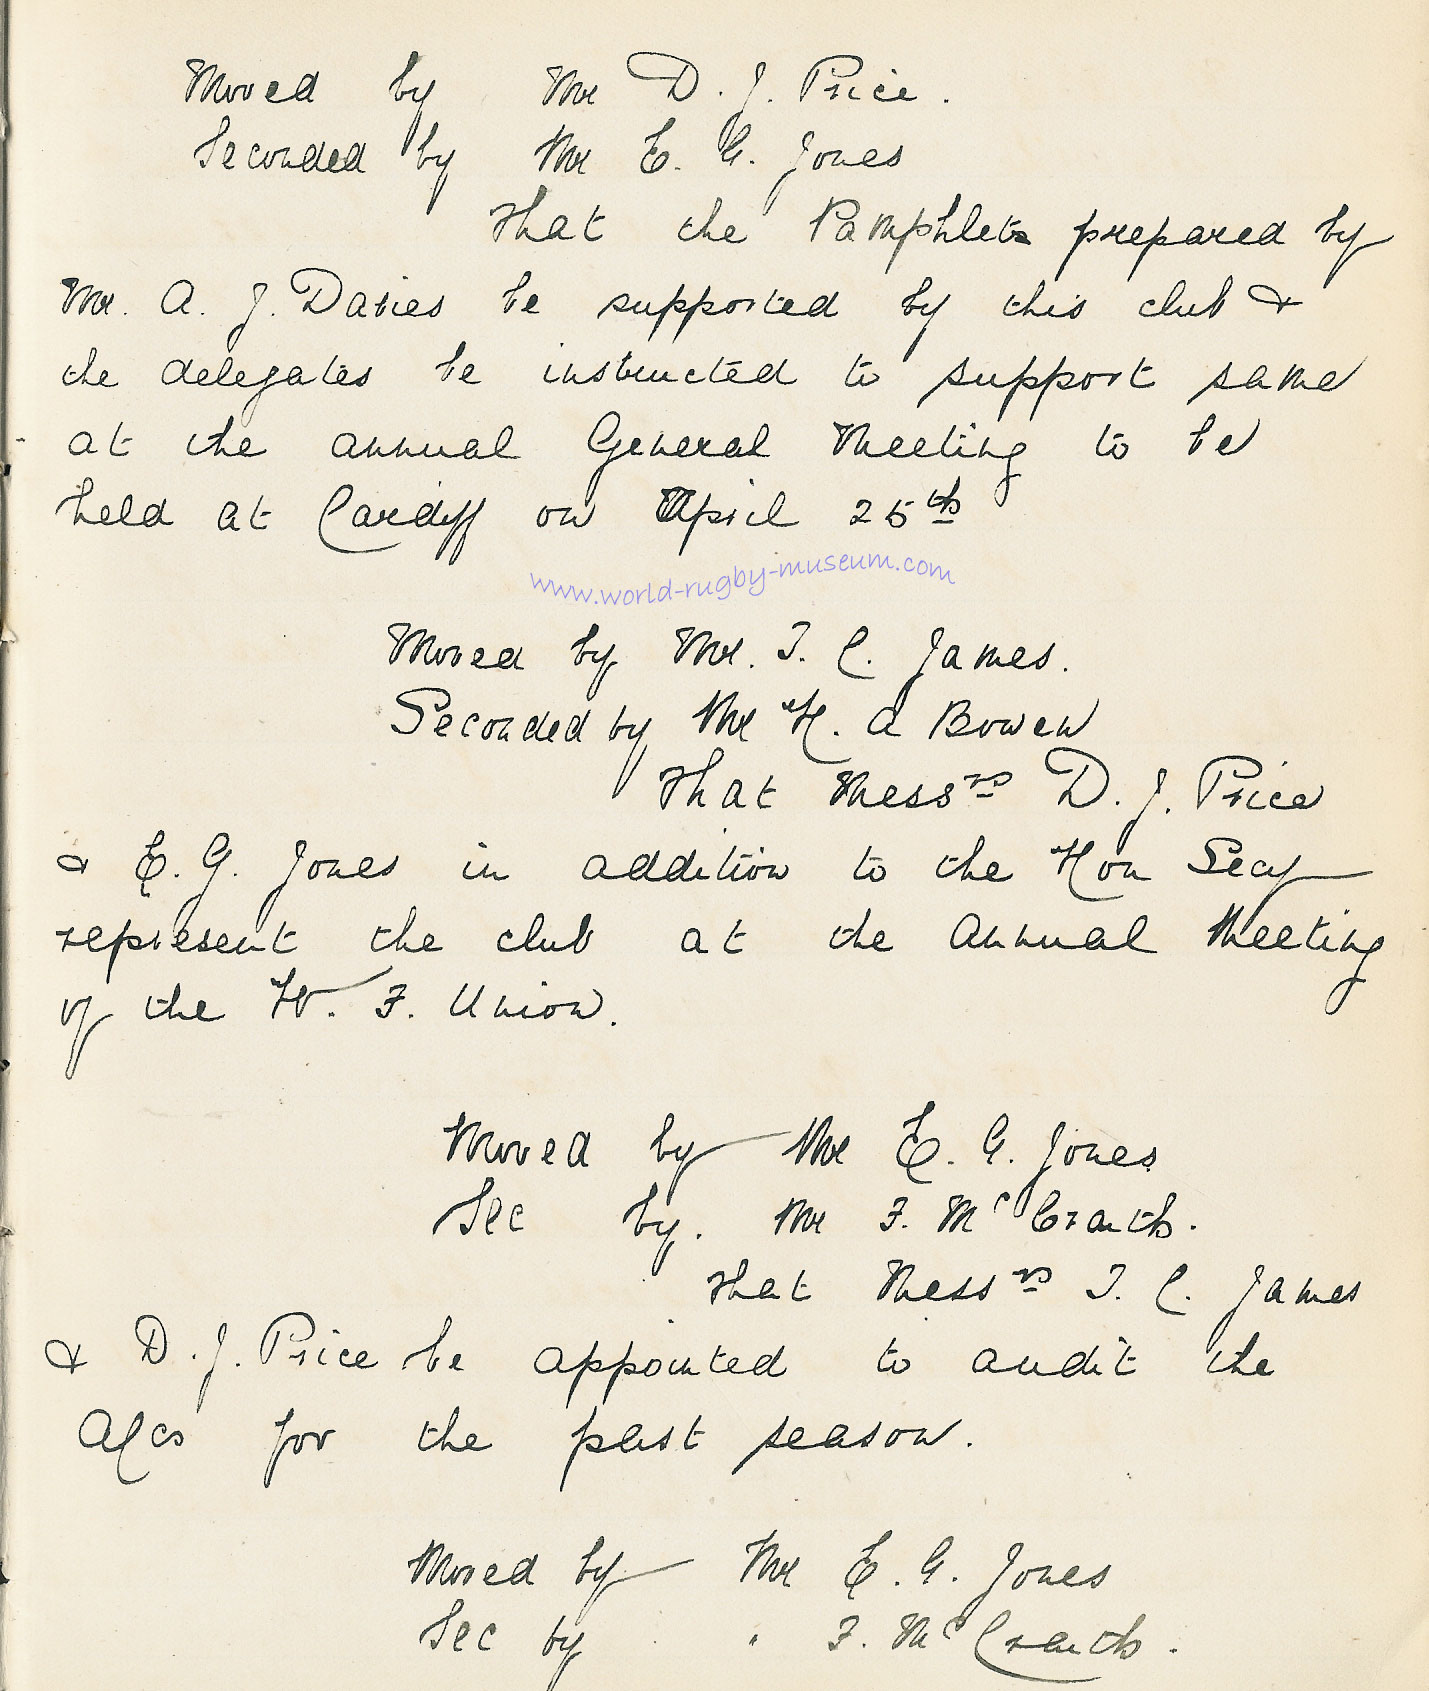 Moved by Mr D. J. Price.
Seconded by Mr E. G. Jones
that the Pamphlet prepared by
Mr. A. J. Davies be supported by this club &
the delegates be instructed to support same
at the annual General Meeting to be
held at Cardiff on April 25th
www.world-rugby-museum.com
Moved by Mr. T. C. James.
Seconded by Mr H. A Bowen
that Messrs D. J. Price
& E. G. Jones in addition to the Hon Secy
represent the club at the Annual Meeting
of the W. F. Union.
Moved by Mr E. G. Jones
Sec by. Mr F. McCraith.
that Messrs T. C. James
& D. J. Price be appointed to audit the
A/cs for the past season.
Moved by Mr E. G. Jones
Sec by " F. McCraith.